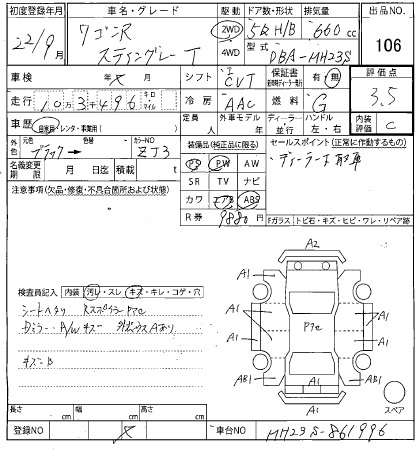 初度登録年月 車名・グレード 駆動 ドア数・形状 排気量 出品NO.
22/9月 ワゴンR スティングレー T 2WD 4WD 5D H/B 660cc 106
型式 DBA-MH23S
車検 年 月 シフト I CVT 保証書 有・無 評価点
走行 10万3千496 キロ マイル 冷房 AAC 燃料 G 3.5
車歴 自家用・レンタ・事業用( ) 定員 人 外車モデル 年 ディーラー・並行 ハンドル 左・右 内装評価 C
外色 元色 ブラック → 色替 カラーNO ZJ3 装備品(純正品に限る) セールスポイント(正常に作動するもの)
名義変更期限 月 日迄 積載 t PS PW AW ディーラー下取車
注意事項(欠品・修復・不具合箇所および状態) SR TV ナビ
カワ エアB ABS
R券 9880円 Fガラス・トビ石・キズ・ヒビ・ワレ・リペア跡
A2
A1 A1
検査員記入 内装 汚れ・スレ キズ・キレ・コゲ・穴
シートヘタリ RスポイラーPアe
Dミラー A/Wキズ 外装小キズAあり
A1 Pアe A1
A1 A1
キズ 小
AB1 A1 AB1
A1 スペア
長さ cm 幅 cm 高さ cm
登録NO 車台NO MH23S-861996